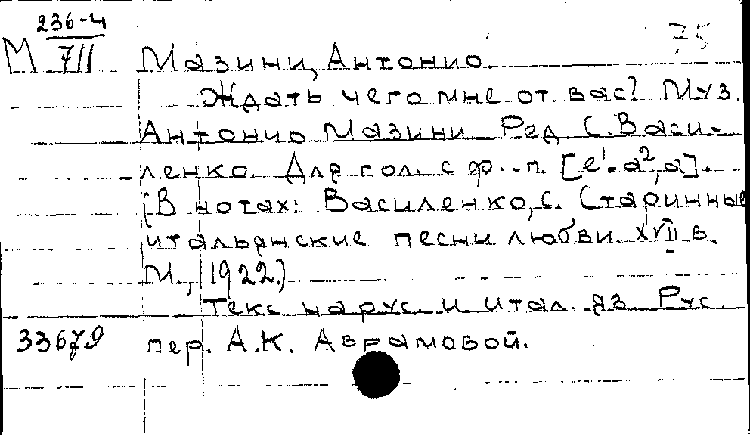 236-4
75
М 711 Мазини, Антонио.
Ждать чего мне от вас? Муз.
Антонио Мазини Ред С. Васи-
ленко. Для гол. с ф.-п. [e¹-a², a].
[В нотах: Василенко, С. Старинные
итальянские песни любви XVII в.
М., 1922.)
Текс на рус. и итал. яз Рус.
33679 пер. А.К. Аврамовой.